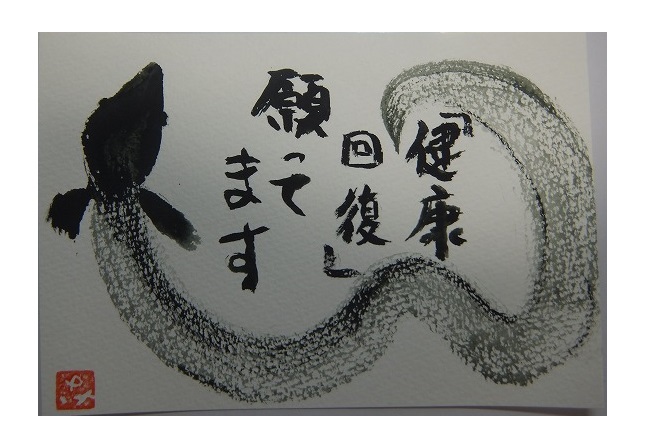 「健康
回復」
願って
ます